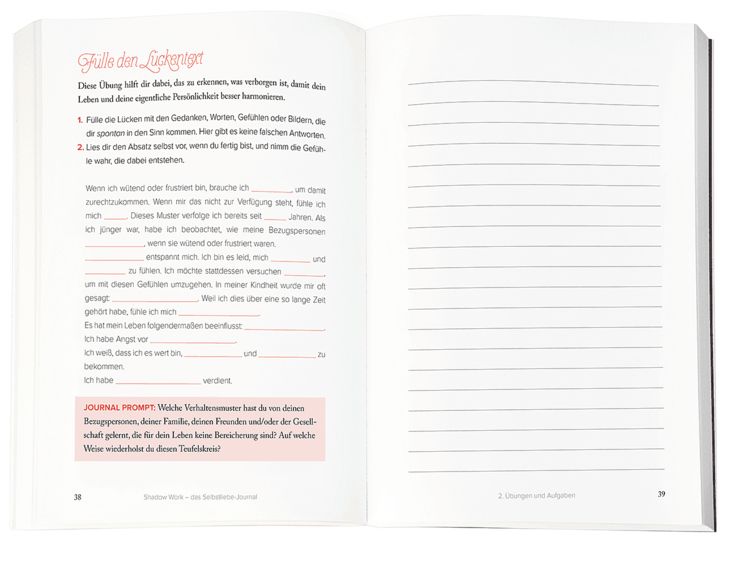 Fülle den Lückentext
Diese Übung hilft dir dabei, das zu erkennen, was verborgen ist, damit dein
Leben und deine eigentliche Persönlichkeit besser harmonieren.
1. Fülle die Lücken mit den Gedanken, Worten, Gefühlen oder Bildern, die
dir spontan in den Sinn kommen. Hier gibt es keine falschen Antworten.
2. Lies dir den Absatz selbst vor, wenn du fertig bist, und nimm die Gefüh-
le wahr, die dabei entstehen.
Wenn ich wütend oder frustriert bin, brauche ich ________, um damit
zurechtzukommen. Wenn mir das nicht zur Verfügung steht, fühle ich
mich _____. Dieses Muster verfolge ich bereits seit _____ Jahren. Als
ich jünger war, habe ich beobachtet, wie meine Bezugspersonen
____________, wenn sie wütend oder frustriert waren.
____________ entspannt mich. Ich bin es leid, mich ________ und
________ zu fühlen. Ich möchte stattdessen versuchen ________,
um mit diesen Gefühlen umzugehen. In meiner Kindheit wurde mir oft
gesagt: ________________. Weil ich dies über eine so lange Zeit
gehört habe, fühle ich mich ________________.
Es hat mein Leben folgendermaßen beeinflusst: ________________.
Ich habe Angst vor ________________.
Ich weiß, dass ich es wert bin, ____________ und ____________ zu
bekommen.
Ich habe ________________ verdient.
JOURNAL PROMPT: Welche Verhaltensmuster hast du von deinen
Bezugspersonen, deiner Familie, deinen Freunden und/oder der Gesell-
schaft gelernt, die für dein Leben keine Bereicherung sind? Auf welche
Weise wiederholst du diesen Teufelskreis?
38 Shadow Work – das Selbstliebe-Journal
2. Übungen und Aufgaben 39